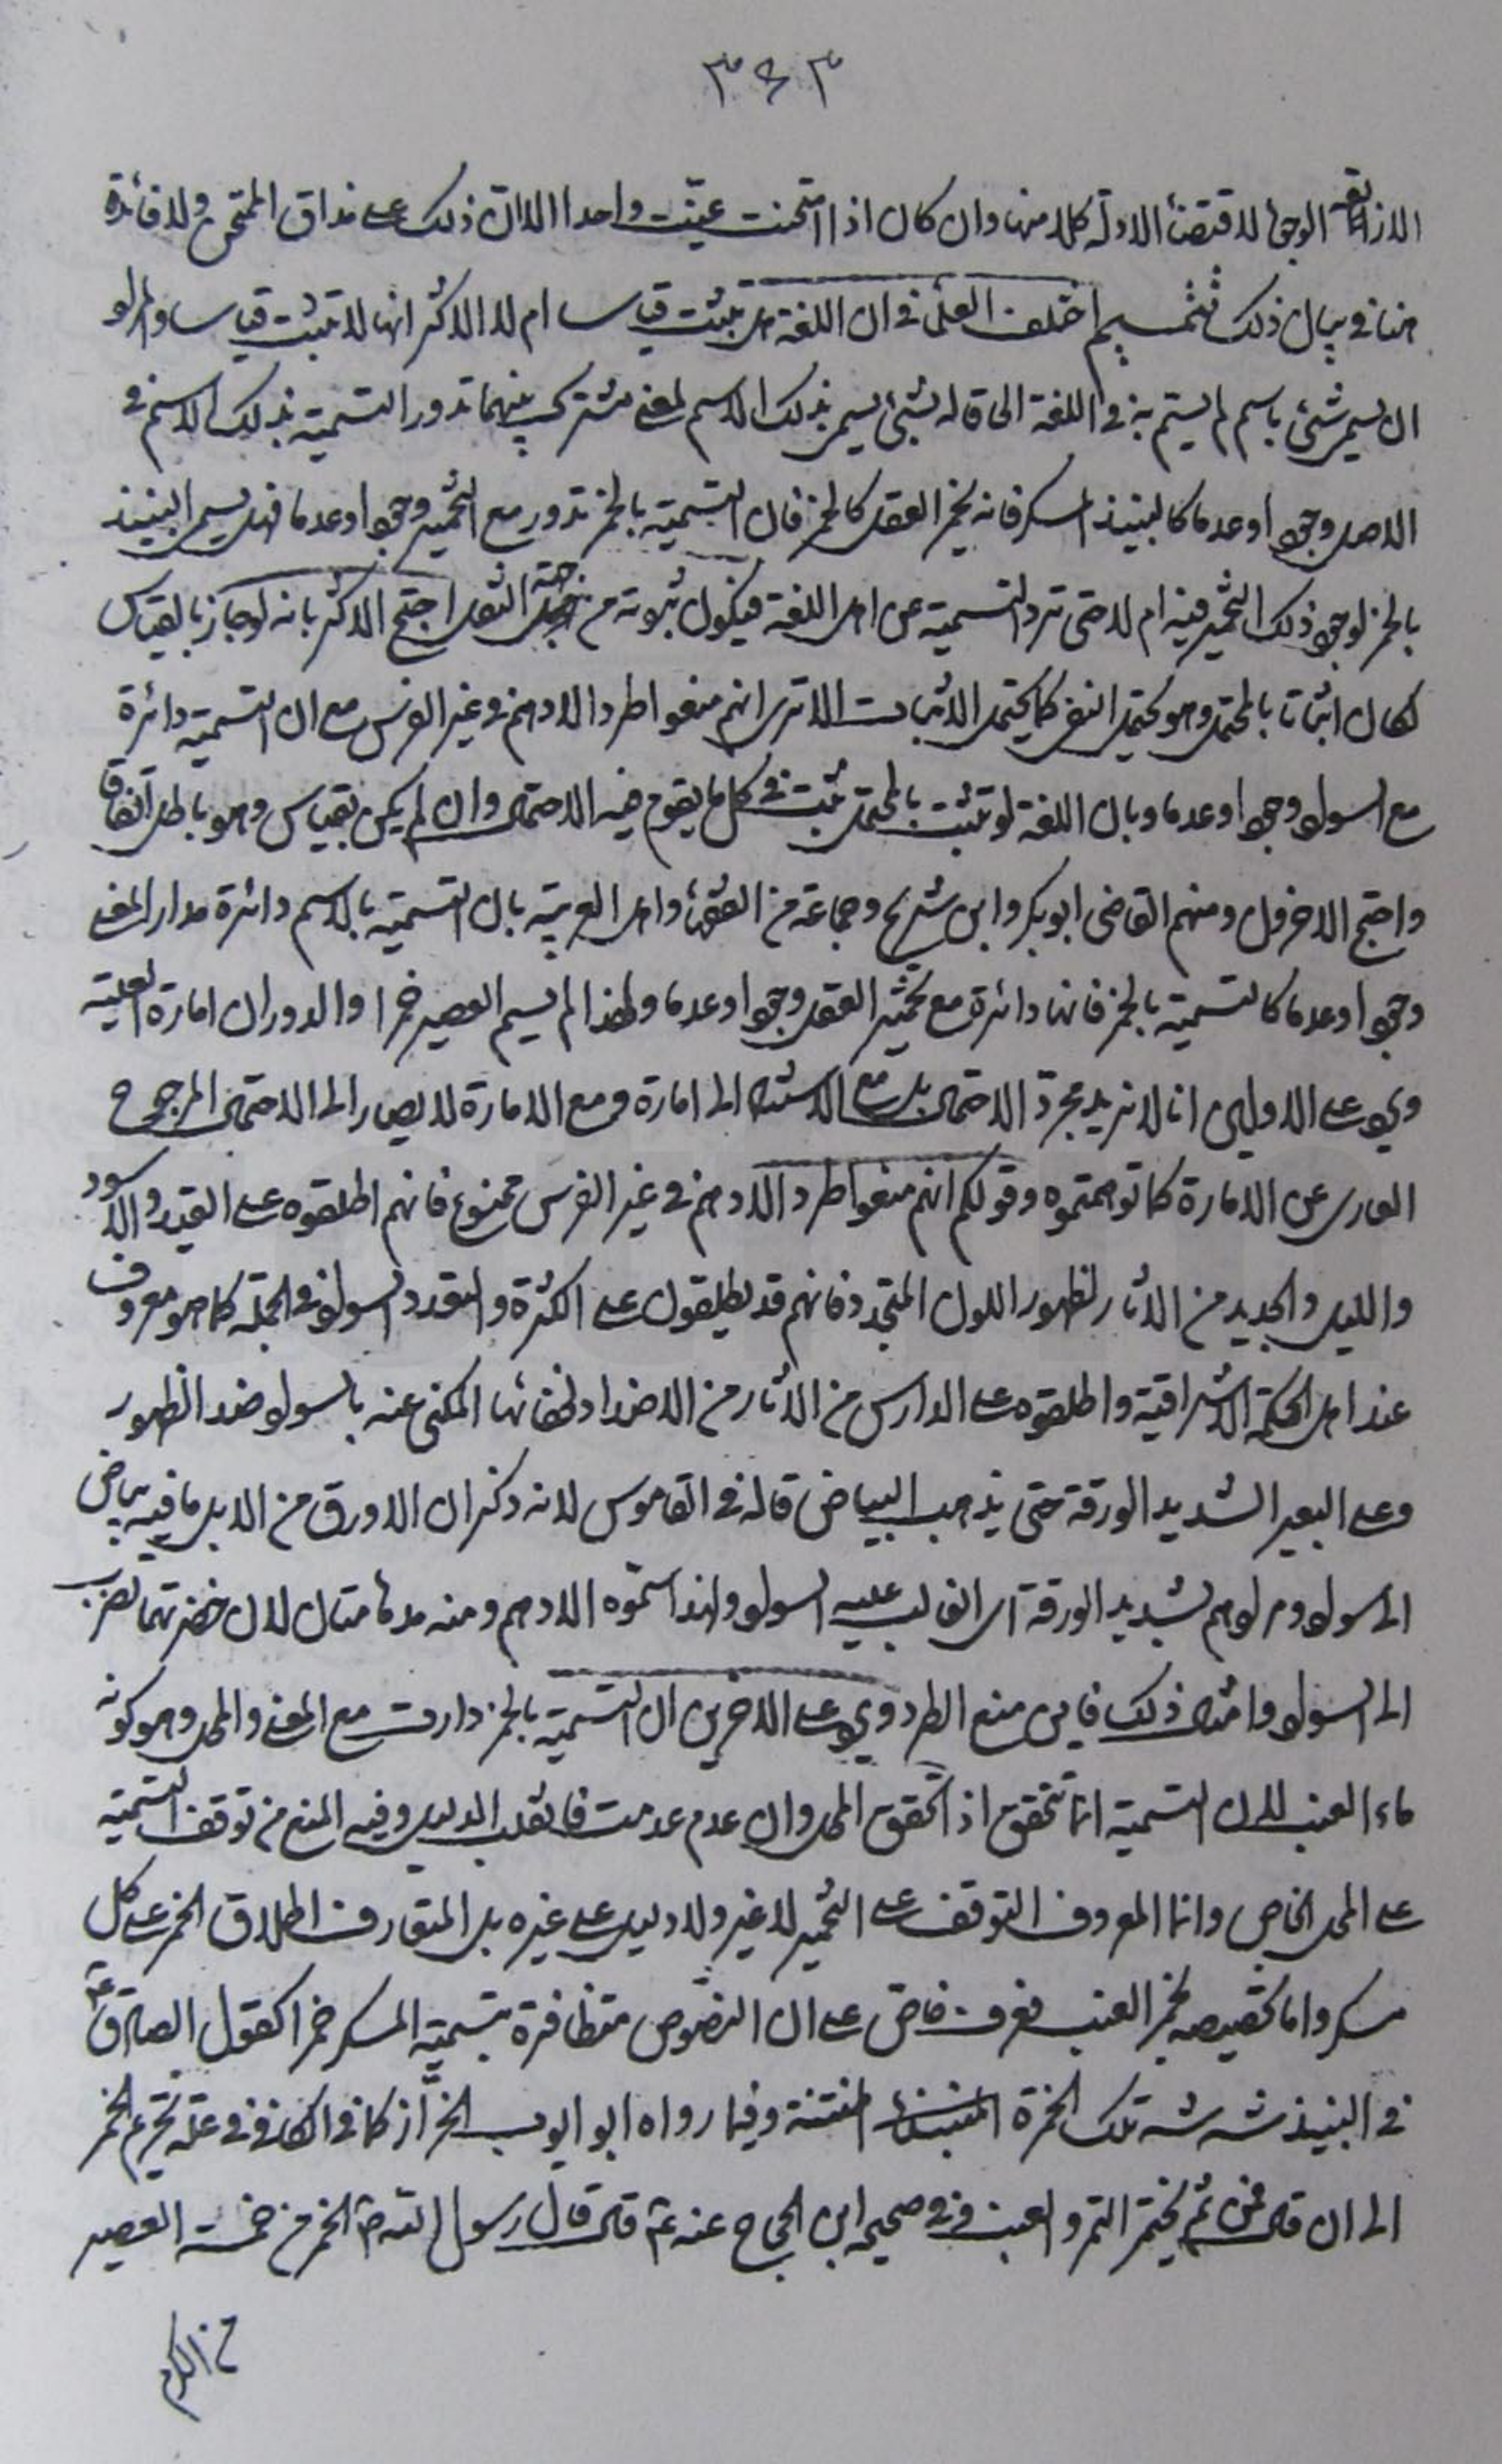 ٣٤٣
الوجود لاقتضاء الادلة كلا منها وان كان اذا امتحنت عيّنت واحدا الا ان ذلك على مذاق الممتحن ولا فائدة
هنا في بيان ذلك تتميم اختلف العلماء في ان اللغة هل تثبت قياسا ام لا الاكثر انها لا تثبت قياسا والمراد
ان يسمى شيء باسم لم يسمّ به في اللغة الحاقا له بشيء يسمى بذلك الاسم لمعنى مشترك بينهما تدور التسمية بذلك الاسم في
الاصل وجودا وعدما كالنبيذ المسكر فانه يخمر العقل كالخمر فان التسمية بالخمر تدور مع التخمير وجودا وعدما فهل يسمى النبيذ
بالخمر لوجود ذلك التخمير فيه ام لا حتى ترد التسمية عن اهل اللغة فيكون ثبوته من جهة النقل احتج الاكثر بانه لو جاز بالقياس
لكان اثباتا بالمحتمل وهو يحتمل النفي كما يحتمل الاثبات الا ترى انهم منعوا طرد الادهم في غير الفرس مع ان التسمية دائرة
مع السواد وجودا وعدما وبان اللغة لو تثبت بالمحتمل تثبت في كل ما يقوم فيه الاحتمال وان لم يكن بقياس وهو باطل اتفاقا
واحتج الاخرون ومنهم القاضي ابو بكر وابن شريح وجماعة من الفقهاء واهل العربية بان التسمية بالاسم دائرة مدار المعنى
وجودا وعدما كالتسمية بالخمر فانها دائرة مع تخمير العقل وجودا وعدما ولهذا لم يسم العصير خمرا والدوران امارة العلية
ويرد على الاولين انا لا نريد مجرد الاحتمال بل مع الاستناد الى امارة ومع الامارة لا يصار الى الاحتمال المرجوح
العاري عن الامارة كما توهمتموه وقولكم انهم منعوا طرد الادهم في غير الفرس ممنوع فانهم اطلقوه على القيد والاسود
والليل والجديد من الآثار لظهور اللون المتجدد فانهم قد يطلقون على الكثرة والتعدد السواد في الجملة كما هو معروف
عند اهل الحكمة الاشراقية واطلقوه على الدارس من الآثار من الاضداد لخفائها المكنى عنه بالسواد ضد الظهور
وعلى البعير الشديد الورقة حتى يذهب البياض قاله في القاموس لانه ذكر ان الاورق من الابل ما فيه بياض
الى سواد ومرادهم بشديد الورقة اي الغالب عليه السواد ولهذا سمّوه الادهم ومنه مدهامتان لان خضرتهما تضرب
الى السواد وامثال ذلك فاين منع الطرد ويرد على الاخرين ان التسمية بالخمر دارت مع المعنى والمحل وهو كونه
ماء العنب لان التسمية انما تتحقق اذا تحقق المحل وان عدم عدمت فانقلب الدليل وفيه المنع من توقف التسمية
على المحل الخاص وانما المعروف التوقف على التخمير لا غير ولا دليل على غيره بل المتعارف اطلاق الخمر على كل
مسكر واما تخصيصه بخمر العنب فعرف خاص على ان النصوص متظافرة بتسمية المسكر خمرا كقول الصادق ع
في النبيذ شه شه تلك الخمرة المنتنة وفيما رواه ابو ايوب الخزّاز كما في الكافي في علة تحريم الخمر
الى ان قال فمن ثم يختمر التمر والعنب وفي صحيحة ابن الحجاج عنه ع قال قال رسول الله ص الخمر من خمسة العصير
من الكرم